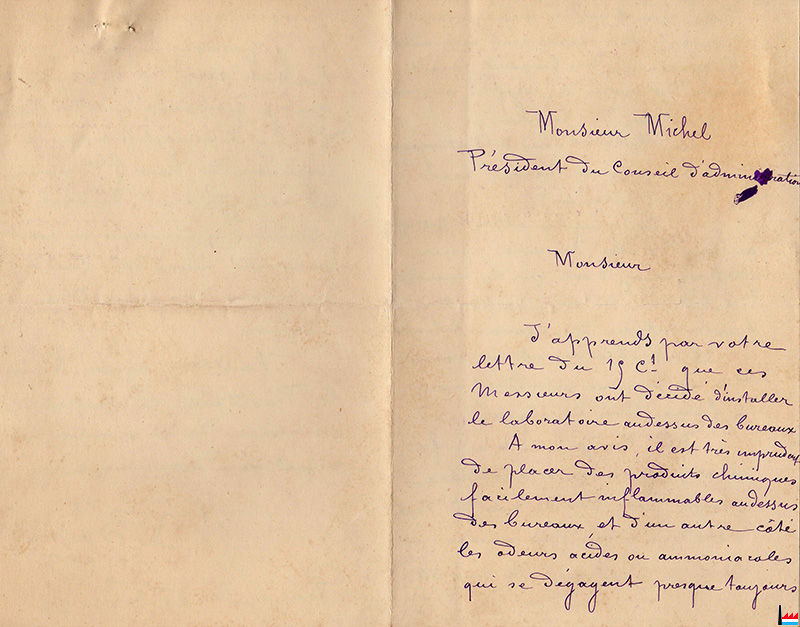 Monsieur Michel
Président du Conseil d'administration
Monsieur
J'apprends par votre
lettre du 15 Ct que ces
Messieurs ont décidé d'installer
le laboratoire audessus des bureaux
A mon avis, il est très imprudent
de placer des produits chimiques
facilement inflammables audessus
des bureaux et d'un autre côté
les odeurs acides ou ammoniacales
qui se dégagent presque toujours